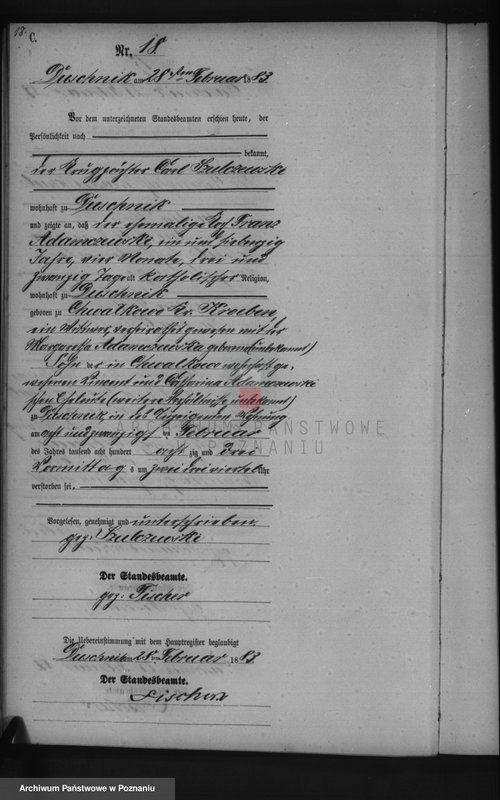 18.
C.
Nr. 18.
Duschnik am 28ten Februar 1883.
Vor dem unterzeichneten Standesbeamten erschien heute, der
Persönlichkeit nach
bekannt,
der Carl Szulczewski
wohnhaft zu Duschnik
und zeigte an, daß der ehemalige Franz
Adamczewski, ein und siebenzig
Jahre, vier Monate, drei und
zwanzig Tage alt katholischer Religion,
wohnhaft zu Duschnik
geboren zu Chwalkowo Kr. Kroeben,
ein Wittwer, verheirathet gewesen mit der
Margaretha Adamczewska geborene (unbekannt)
Sohn der in Chwalkowo wohnhaft ge-
wesenen Vincent und Catharina Adamczewski
schen Eheleute (weitere Verhältnisse unbekannt)
zu Duschnik in der Wohnung
am acht und zwanzigsten Februar
des Jahres tausend acht hundert achtzig und drei
Vormittags um zwei drei viertel Uhr
verstorben sei.
Vorgelesen, genehmigt und unterschrieben.
gez. Szulczewski
Der Standesbeamte.
gez. Fischer
Die Uebereinstimmung mit dem Hauptregister beglaubigt
Duschnik am 28ten Februar 1883.
Der Standesbeamte.
Fischer
ARCHIWUM PAŃSTWOWE
W POZNANIU
Archiwum Państwowe w Poznaniu